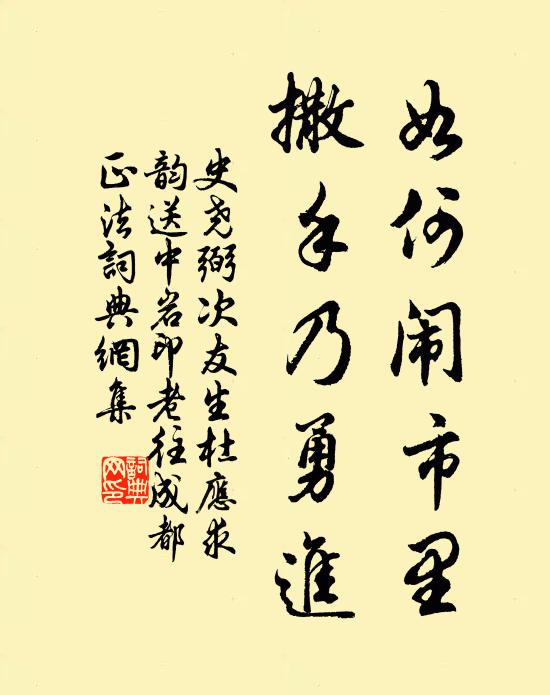 如何闹市里
撒手乃勇進
史尧弼次友生杜應求
韵送中岩印老往成都
正法詞典網集
詞典
网印